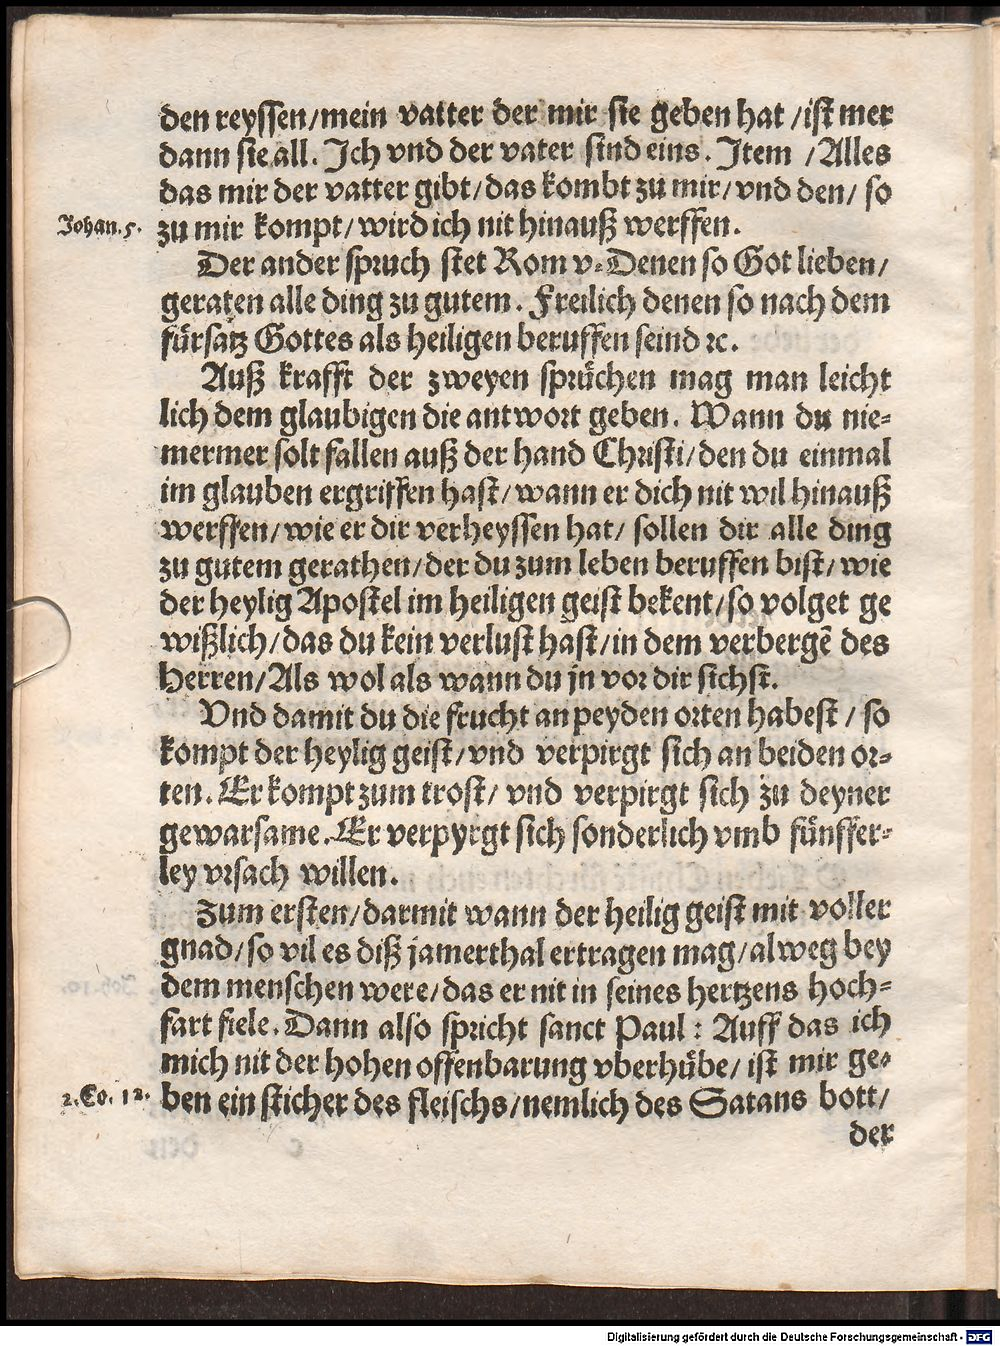 den reyssen/mein vatter der mir sie geben hat/ist mer
dann sie all. Ich vnd der vater sind eins. Item /Alles
das mir der vatter gibt/das kombt zu mir/vnd den/ so
Johan. 5. zu mir kompt/wird ich nit hinauß werffen.
Der ander spruch stet Rom v. Denen so Got lieben/
geraten alle ding zu gutem. Freilich denen so nach dem
fürsatz Gottes als heiligen beruffen seind ꝛc.
Auß krafft der zweyen sprüchen mag man leicht
lich dem glaubigen die antwort geben. Wann du nie⸗
mermer solt fallen auß der hand Christi/den du einmal
im glauben ergriffen hast/wann er dich nit wil hinauß
werffen/wie er dir verheyssen hat/ sollen dir alle ding
zu gutem gerathen/der du zum leben beruffen bist/wie
der heylig Apostel im heiligen geist bekent/so volget ge
wißlich/das du kein verlust hast/in dem verbergẽ des
Herren/Als wol als wann du jn vor dir sichst.
Vnd damit du die frucht an peyden orten habest/ so
kompt der heylig geist/vnd verpirgt sich an beiden or⸗
ten. Er kompt zum trost/ vnd verpirgt sich zu deyner
gewarsame. Er verpyrgt sich sonderlich vmb fünffer⸗
ley vrsach willen.
Zum ersten/darmit wann der heilig geist mit voller
gnad/so vil es diß jamerthal ertragen mag/alweg bey
dem menschen were/das er nit in seines hertzens hoch⸗
fart fiele. Dann also spricht sanct Paul: Auff das ich
mich nit der hohen offenbarung vberhübe/ ist mir ge⸗
2. Co. 12. ben ein sticher des fleischs/nemlich des Satans bott/
der
Digitalisierung gefördert durch die Deutsche Forschungsgemeinschaft - DFG